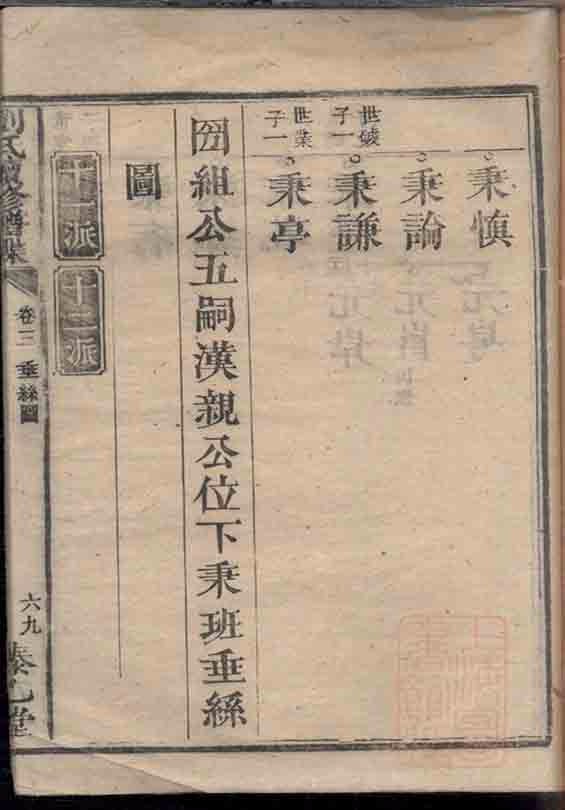 秉慎
秉論
世綾
子一
秉謙
世業
子一
秉亭
組公五嗣漢親公位下秉班垂絲
圖
十一派
十二派
卷三
垂絲圖
六九